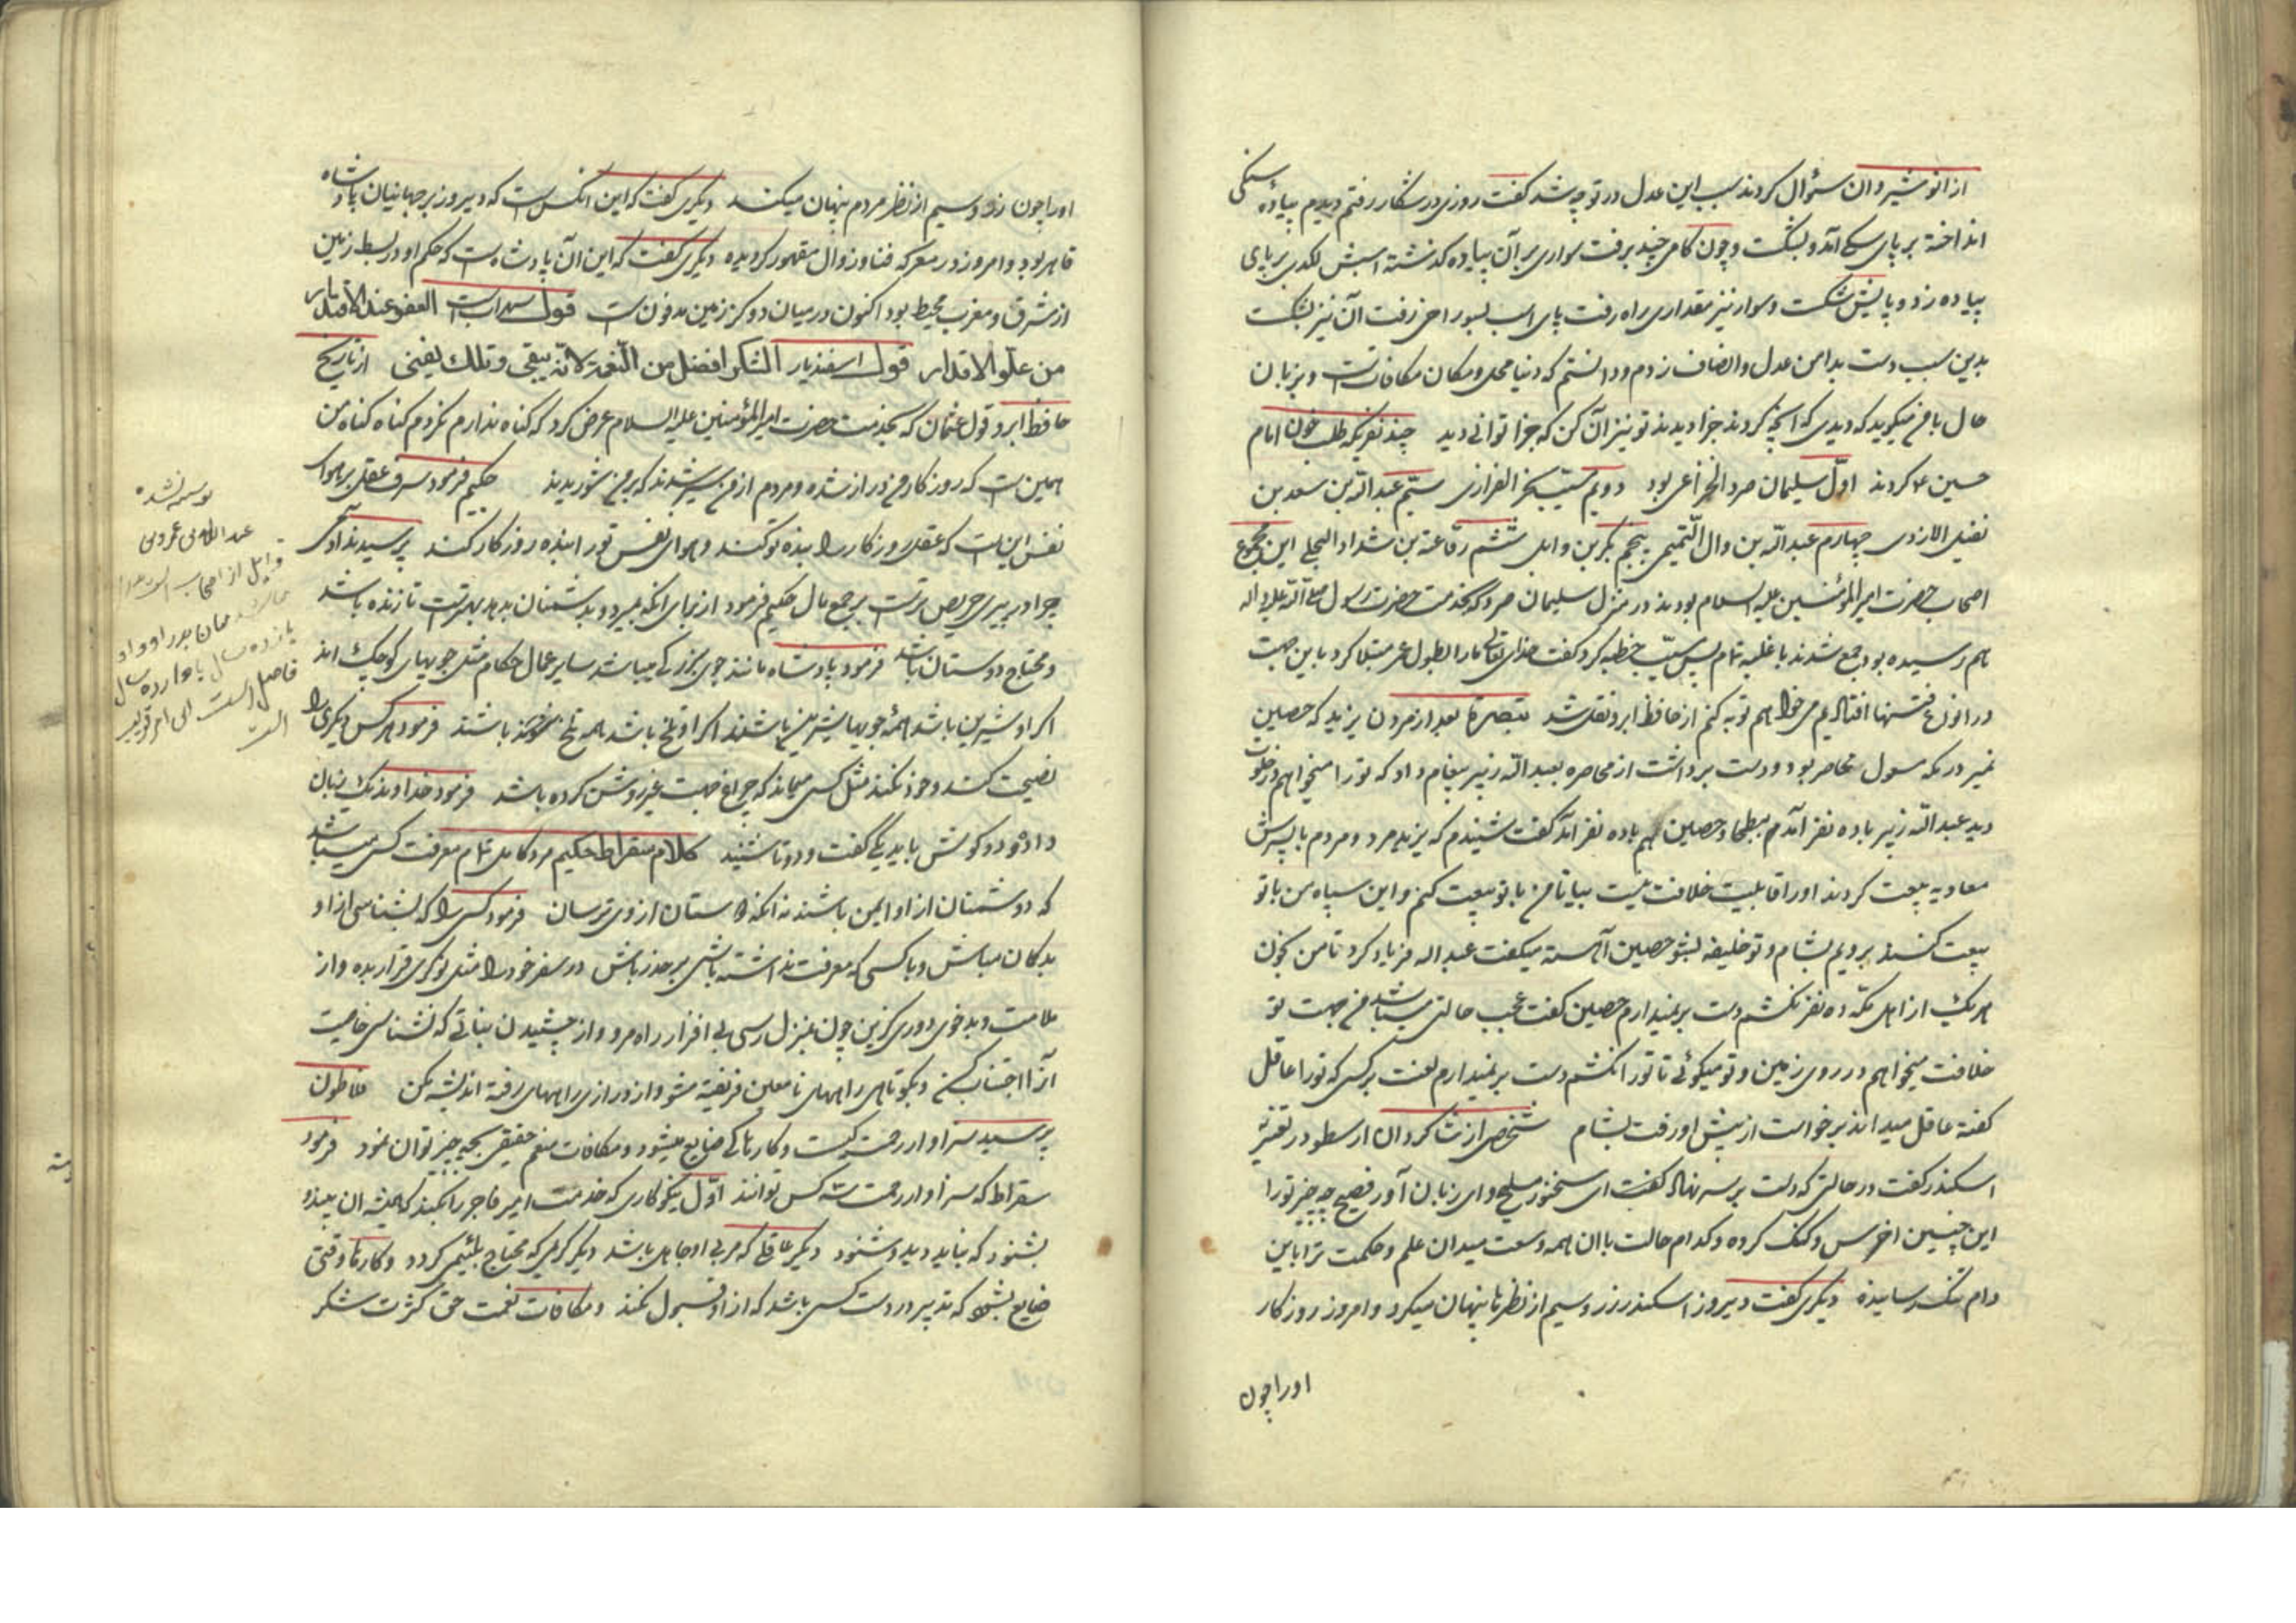 از انوشیروان سؤال کردند سبب این عدل در تو چه شد کفت روزی در شکار رفتم دیدم پیادهٔ سنکی
انداخته بر پای سکی آمد و بشکست و چون کامی چند برفت سواری بر آن پیاده کذشته اسبش لکدی بر پای
پیاده زد و پایش شکست و سوار نیز مقداری راه رفت پای اسب بسوراخی رفت آن نیز بشکست
بدین سبب دست بدامن عدل و انصاف زدم و دانستم که دنیا محل و مکان مکافاتست و بزبان
حال با من میکوید که دیدی که انچه کردند جزا دیدند تو نیز آن کن که جزا توانی دید چند نفریکه طلب خون امام
حسین ع کردند اوّل سلیمان صرد الخزاعی بود دویم مسیّب الفزازی سیّم عبدالله بن سعد بن
نفیل الازدی چهارم عبدالله بن وال التّمیمی پنجم بکر بن وایل ششم رفاعة بن شداد البجلی این مجموع
اصحاب حضرت امیرالمؤمنین علیه السلام بودند در منزل سلیمان صرد که بخدمت حضرت رسول صلی الله علیه و اله
هم رسیده بود جمع شدند با غلبه تمام پس مسیّب خطبه کرد کفت خدای تعالی مارا بطول عمر مبتلا کرد باین جهت
در انواع فتنها افتاده‌ایم میخواهم توبه کنم از حافظ ابرو نقل شد تبصرة بعد از مردن یزید که حصین
نمیر در مکه محاصر بود و دست برداشت از محاصره بعبدالله زبیر پیغام داد که تورا میخواهم در خلوت
دید عبدالله زبیر با ده نفر آمدم ببطحا و حصین هم با ده نفر آمد کفت شنیدم که یزید مرد و مردم با پسرش
معاویه بیعت کردند او را قابلیت خلافت نیست بیا تا من با تو بیعت کنم و این سپاه من با تو
بیعت کنند برویم بشام و تو خلیفه بشو حصین آهسته میکفت عبداله فریاد کرد تا من بخون
هر یک از اهل مکّه ده نفر نکشم دست برنمیدارم حصین کفت عجب حالتی میباشد من جهت تو
خلافت میخواهم در روی زمین و تو میکوئی تا تورا نکشم دست برنمیدارم لعنت بر کسی که تورا عاقل
کفته عاقل میداند برخواست از پیش او رفت بشام شخصی از شاکردان ارسطو در تعزیهٔ
اسکندر کفت در حالتی که دست بر سر نهاده کفت ای سخنور ملیح و ای زبان آور فصیح چه چیز تورا
این چنین اخرس و کنک کرده و کدام حالت با ان همه وسعت میدان علم و حکمت ترا باین
دام تنک رسانیده دیکری کفت دیروز اسکندر زر و سیم از نظرها پنهان میکرد و امروز روزکار
اورا چون
اورا چون زر و سیم از نظر مردم پنهان میکند دیکری کفت که این انکس است که دیروز بر جهانیان پادشاه
قاهر بود و امروز در معرکه فنا و زوال مقهور کردیده دیکری کفت که این آن پادشاهست که حکم او در بسط زمین
از مشرق و مغرب محیط بود اکنون در میان دو کز زمین مدفونست قول سهراب است العفو عند الاقتدار
من علّو الاقدار قول اسفندیار الشکر افضل من النّعمة لانّه یبقی و تلک یفنی از تاریخ
حافظ ابرو قول عثمان که بخدمت حضرت امیرالمؤمنین علیه السلام عرض کرد که کناه ندارم نکردم کناه کناه من
همین است که روزکار من دراز شده و مردم از من سیر شدند که بر من شوریدند حکیم فرمود شرف عقل بر هوای
نفس این است که عقل روزکار را بنده تو کند و هوای نفس تورا بنده روزکار کند پرسیدند آدمی
چرا در پیری حریص‌ترست بر جمع مال حکیم فرمود از برای انکه بمیرد و بدشمنان بدهد بهترست تا زنده باشد
و محتاج دوستان باشد فرمود پادشاه مانند جوی بزرکی میباشد سایر عمال حکام مثل جویهای کوچک اند
اکر او شیرین باشد همهٔ جویها شیرین باشند اکر او تلخ باشد همه تلخ باشند فرمود هر کس دیکری را
نصیحت کند و خود نکند مثل کسی میماند که چراغ جهت غیر روشن کرده باشد فرمود خداوند یک زبان
داد و دو کوش باید یکی کفت و دو تا شنید کلام سقراط حکیم مرد کامل تمام معرفت کسی میباشد
که دشمنان از او ایمن باشند نه انکه دوستان از وی ترسان فرمود کسی را که بشناسی از او
بد کمان مباش و با کسی که معرفت نداشته باشی بر حذر باش در سفر خود را مثل نوکری قرار بده و از
ملامت و بدخوی دوری کزین چون بمنزل رسی بی افزار راه مرو و از چشیدن نباتی که نشناسی خاصیت
آنرا اجتناب کن و بکوتاهی راههای نامعین فریفته مشو و از درازی راههای رفته اندیشه مکن فلاطون
پرسید سزاوار رحمت کیست و کارها کی ضایع میشود و مکافات منعم حقیقی بچه چیز توان نمود فرمود
سقراط که سزاوار رحمت سه کس توانند اوّل نیکوکاری که خدمت امیر فاجر را بکند که همیشه ان ببیند و
بشنود که نباید دید و شنود دیکر عاقلی که مربی او جاهل باشد دیکر کریمی که محتاج بلئیمی کردد و کارها وقتی
ضایع بشود که تدبیر در دست کسی باشد که از او قبول نکنند و مکافات نعمت حق کثرت شکر